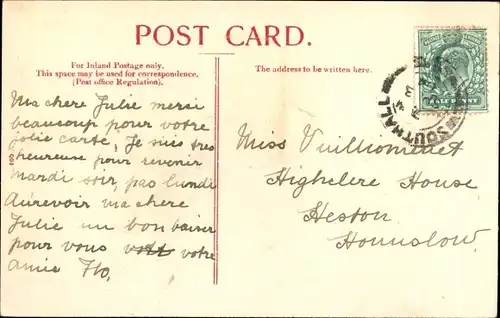 POST CARD.
For Inland Postage only.
This space may be used for correspondence.
(Post office Regulation).
The address to be written here.
Ma chere Julie merci
beaucoup pour votre
jolie carte, Je suis tres
heureuse pour revenir
mardi soir, pas lundi
Aurevoir ma chere
Julie un bon baiser
pour vous votre
amie Flo.
Miss
Highclere House
Heston
Hounslow.
SOUTHALL
HALFPENNY